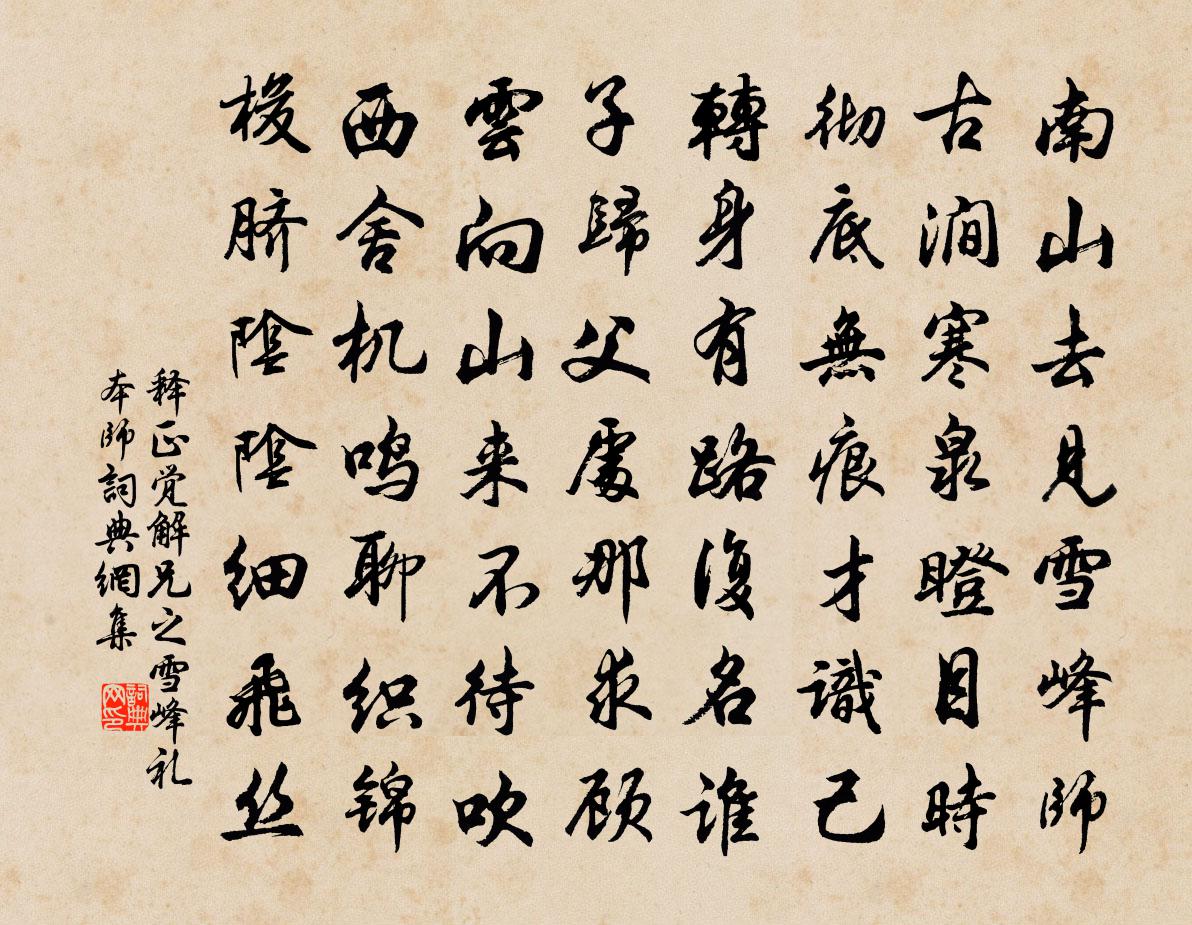 南山去見雪峰師
古澗寒泉瞪目時
彻底無痕才識己
轉身有路復名誰
子歸父處那求顾
雲向山来不待吹
西舍机鸣聊织锦
梭脐陰陰细飛丝
释正觉解兄之雪峰礼
本師詞典網集
詞典网印